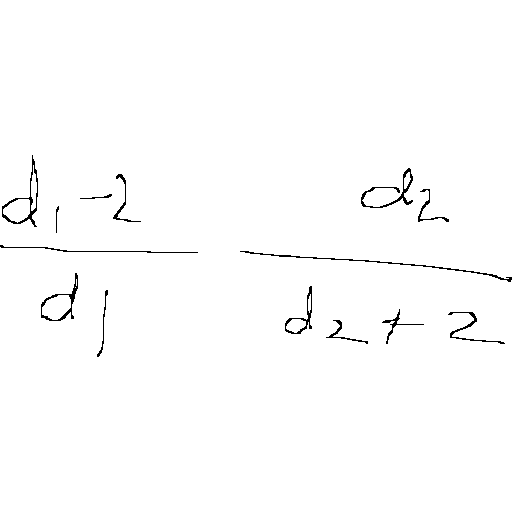 \frac{d_1-2}{d_1} \frac{d_2}{d_2+2}